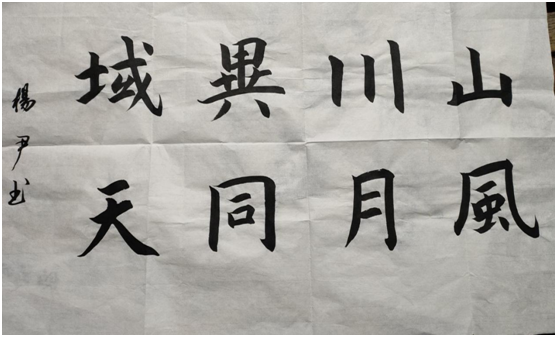 山川異域
風月同天
楊尹